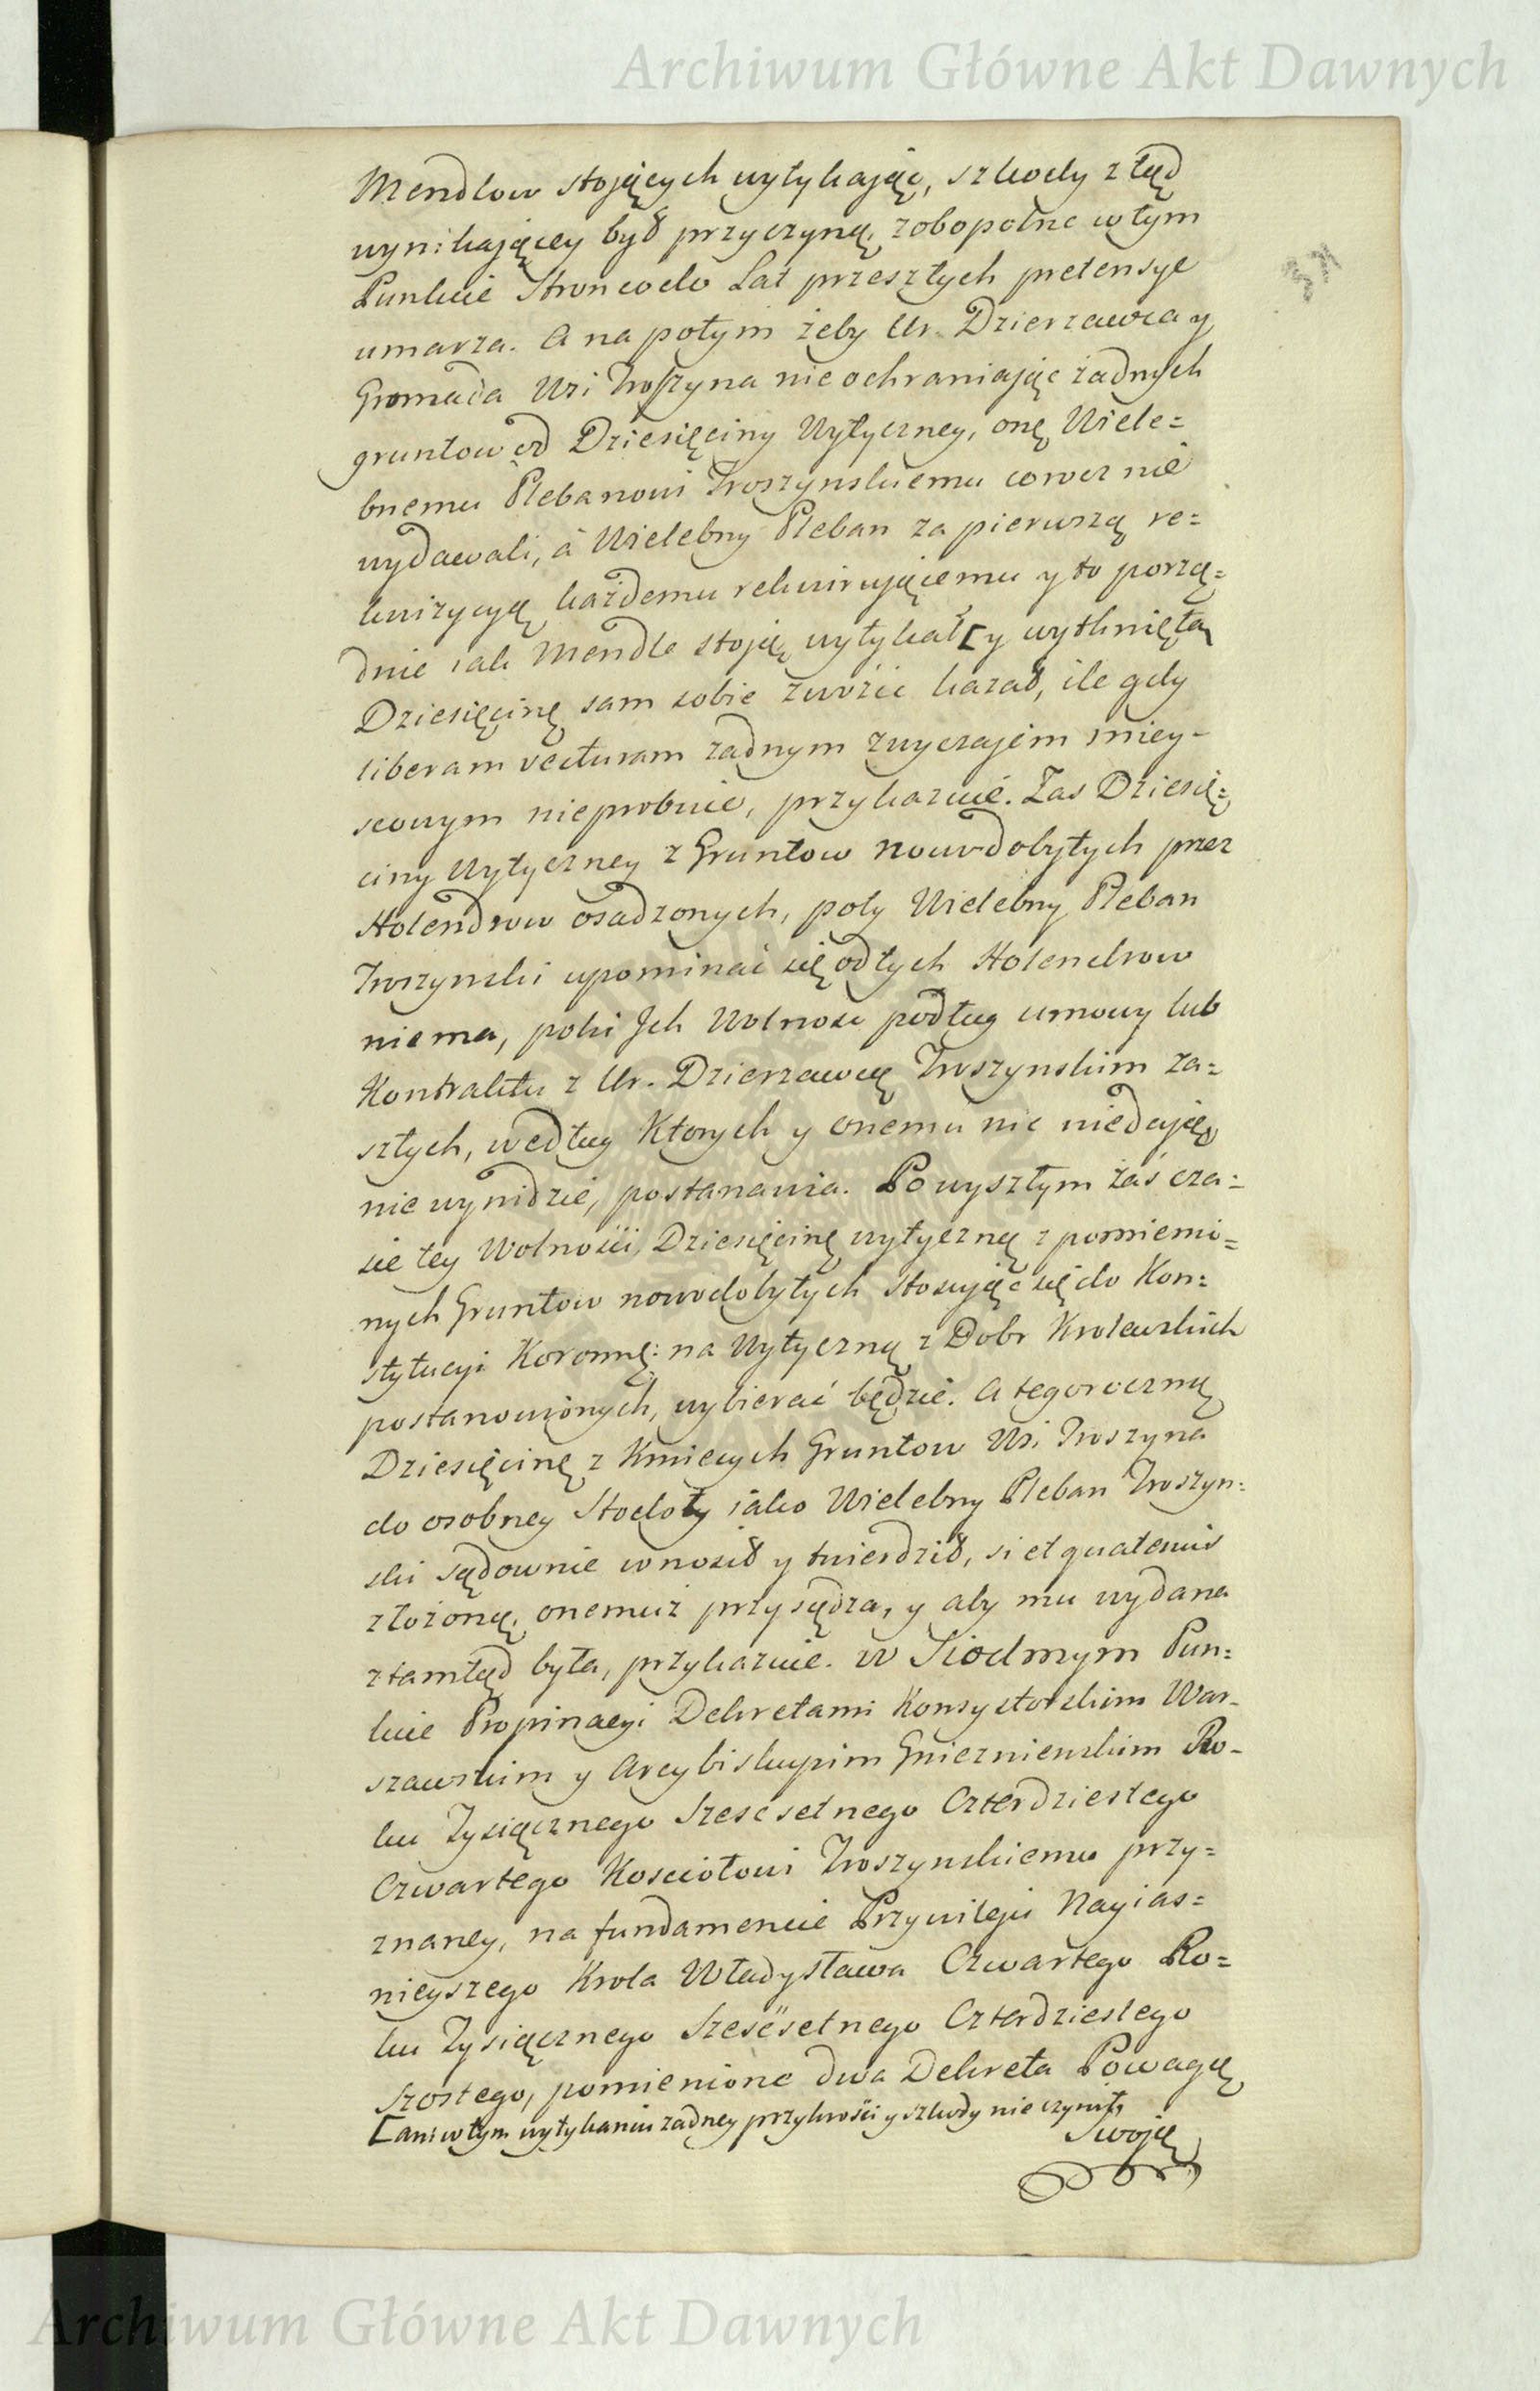 Archiwum Główne Akt Dawnych
37
Mendlow stojących wytykaiąc, szkody ztąd
wynikaiącey był przyczyną, zobopolne w tym
Punkcie Stron co do Lat przeszłych pretensye
umarza. A na potym żeby Ur. Dzierzawca y
Gromada Wsi Troszyna nie ochraniaiąc żadnych
gruntow od Dziesięciny Wytyczney, onę Wiele=
bnemu Plebanowi Troszynskiemu corocznie
wydawali, á Wielebny Pleban za pierwszą re=
kwizycyą każdemu rekwiruiącemu y to porzą=
dnie iak Mendle stoją, wytykał [y wytkniętą
Dziesięcinę sam sobie zwoźić kazał, ile gdy
liberam vecturam żadnym zwyczajem miey-
scowym nieprobuie, przykazuie. Zas Dziesię=
ciny Wytyczney z Gruntow nowodobytych przez
Holendrow osadzonych, poty Wielebny Pleban
Troszynski upominać się od tych Holendrow
niema, poki Jch Wolnosc podług umowy lub
Kontraktu z Ur. Dzierzawcą Troszynskim za=
szłych, według Ktorych y onemu nic niedają,
nie wynidzie, postanawia. Po wyszłym zaś cza=
sie tey Wolnośći, Dziesięcinę wytyczną z pomienio=
nych Gruntow nowodobytych stosując się do Kon=
stytucyi Koronnę: na Wytyczną z Dobr Krolewskich
postanowionych, wybierać będzie. A tegoroczną
Dziesięcinę z Kmiecych Gruntow Wsi Troszyna
do osobney Stodoły iako Wielebny Pleban Troszyn=
ski sądownie wnosił y twierdził, si et quatenus
złożoną, onemuż przysądza, y aby mu wydana
ztamtąd była, przykazuie. W Siodmym Pun=
kcie Propinacyi Dekretami Konsystorskim War-
szawskim y Arcybiskupim Gnieznienskim Ro-
ku Tysiącznego Szescsetnego Czterdziestego
Czwartego Kosciołowi Troszynskiemu przy=
znaney, na fundamencie Przywileju Nayias=
nieyszego Krola Władysława Czwartego Ro=
ku Tysiącznego Szescsetnego Czterdziestego
Szostego, pomienione dwa Dekreta Powagą
[ani w tym wytykaniu żadney przykrośći y szkody nie czynił,
Swoją
Archiwum Główne Akt Dawnych